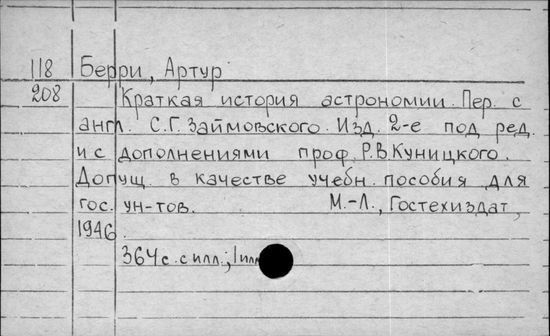 118 Берри, Артур
208 Краткая история астрономии. Пер. с
англ. С.Г. Займовского. Изд. 2-е под ред.
и с дополнениями проф. Р.В. Куницкого.
Допущ. в качестве учебн. пособия для
гос. ун-тов. М.-Л., Гостехиздат,
1946.
364 с. с илл.; 1 илл